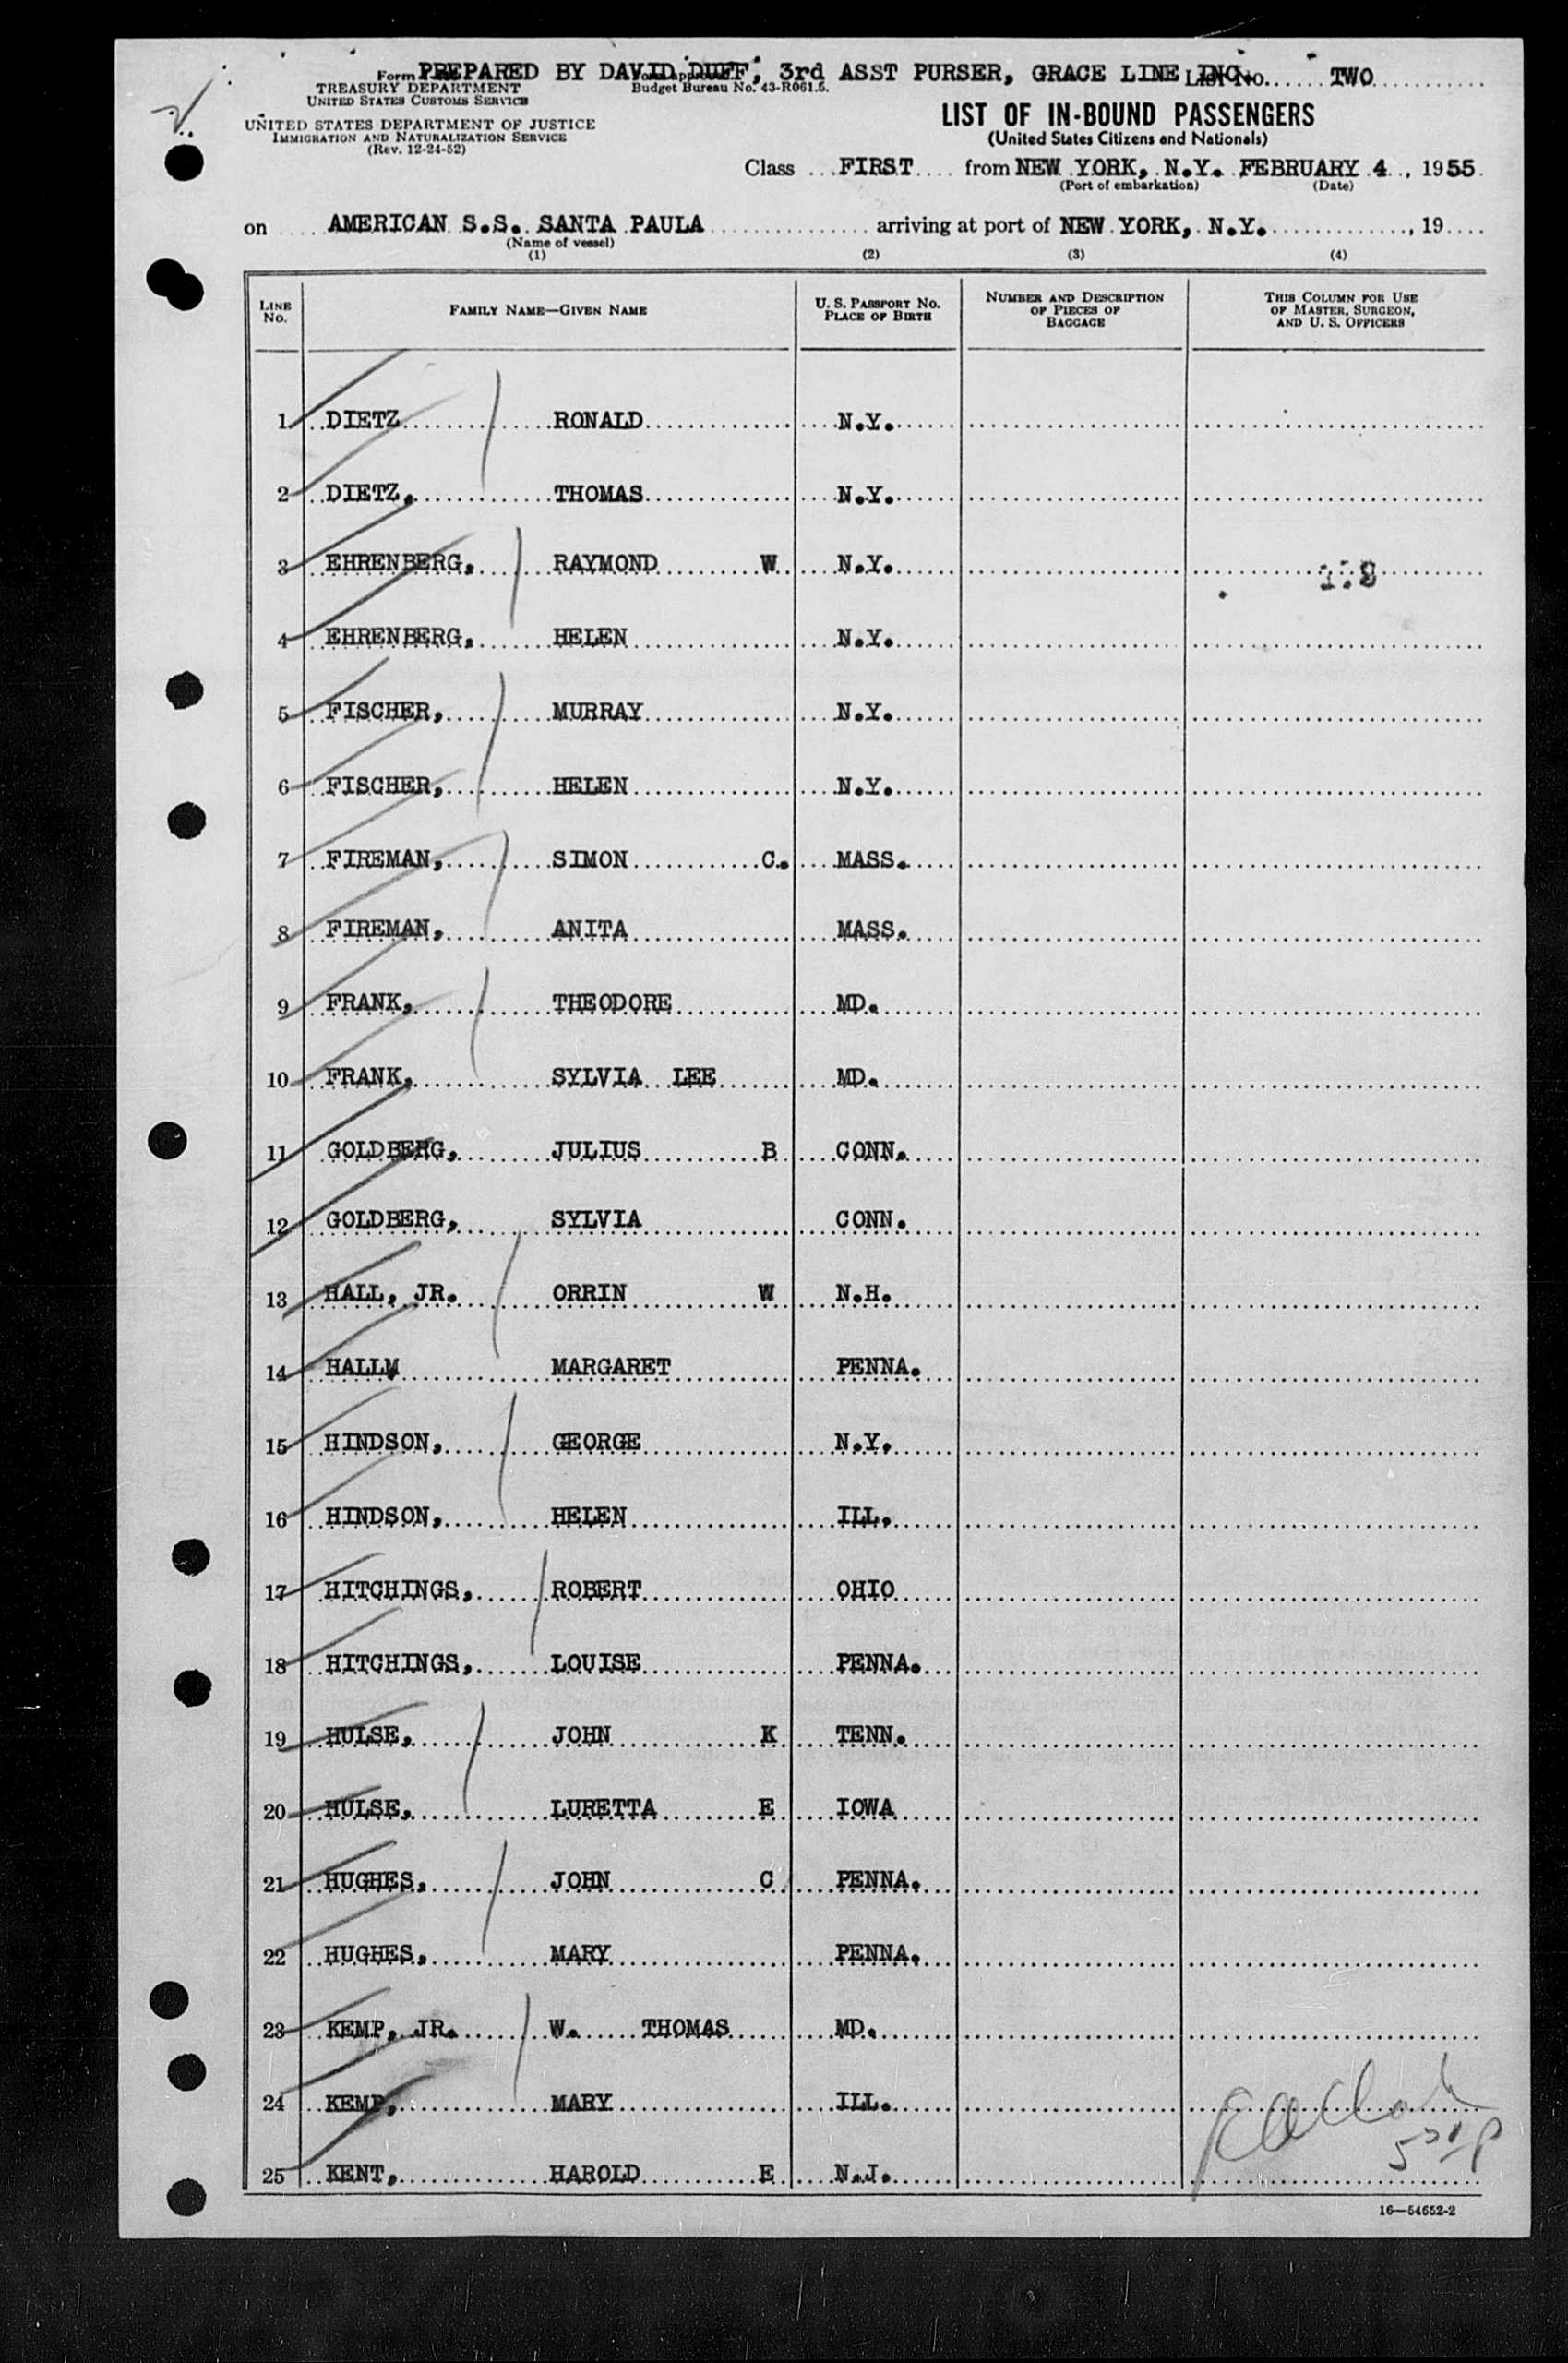 PREPARED BY DAVID DUFF, 3rd ASST PURSER, GRACE LINE INC. List No. TWO
Form
TREASURY DEPARTMENT
UNITED STATES CUSTOMS SERVICE
Budget Bureau No. 43-R061.5.
UNITED STATES DEPARTMENT OF JUSTICE
IMMIGRATION AND NATURALIZATION SERVICE
(Rev. 12-24-52)
LIST OF IN-BOUND PASSENGERS
(United States Citizens and Nationals)
Class FIRST from NEW YORK, N.Y. FEBRUARY 4, 1955
(Port of embarkation) (Date)
on AMERICAN S.S. SANTA PAULA arriving at port of NEW YORK, N.Y., 19
(Name of vessel)
(1) (2) (3) (4)
LINE NO. FAMILY NAME—GIVEN NAME U. S. PASSPORT NO. PLACE OF BIRTH NUMBER AND DESCRIPTION OF PIECES OF BAGGAGE THIS COLUMN FOR USE OF MASTER, SURGEON, AND U. S. OFFICERS
1 DIETZ RONALD N.Y.
2 DIETZ, THOMAS N.Y.
3 EHRENBERG, RAYMOND W N.Y.
4 EHRENBERG, HELEN N.Y.
5 FISCHER, MURRAY N.Y.
6 FISCHER, HELEN N.Y.
7 FIREMAN, SIMON C. MASS.
8 FIREMAN, ANITA MASS.
9 FRANK, THEODORE MD.
10 FRANK, SYLVIA LEE MD.
11 GOLDBERG, JULIUS B CONN.
12 GOLDBERG, SYLVIA CONN.
13 HALL, JR. ORRIN W N.H.
14 HALLM MARGARET PENNA.
15 HINDSON, GEORGE N.Y.
16 HINDSON, HELEN ILL.
17 HITCHINGS, ROBERT OHIO
18 HITCHINGS, LOUISE PENNA.
19 HULSE, JOHN K TENN.
20 HULSE, LURETTA E IOWA
21 HUGHES, JOHN C PENNA.
22 HUGHES, MARY PENNA.
23 KEMP, JR. W. THOMAS MD.
24 KEMP, MARY ILL.
25 KENT, HAROLD E N.J.
16—54652-2